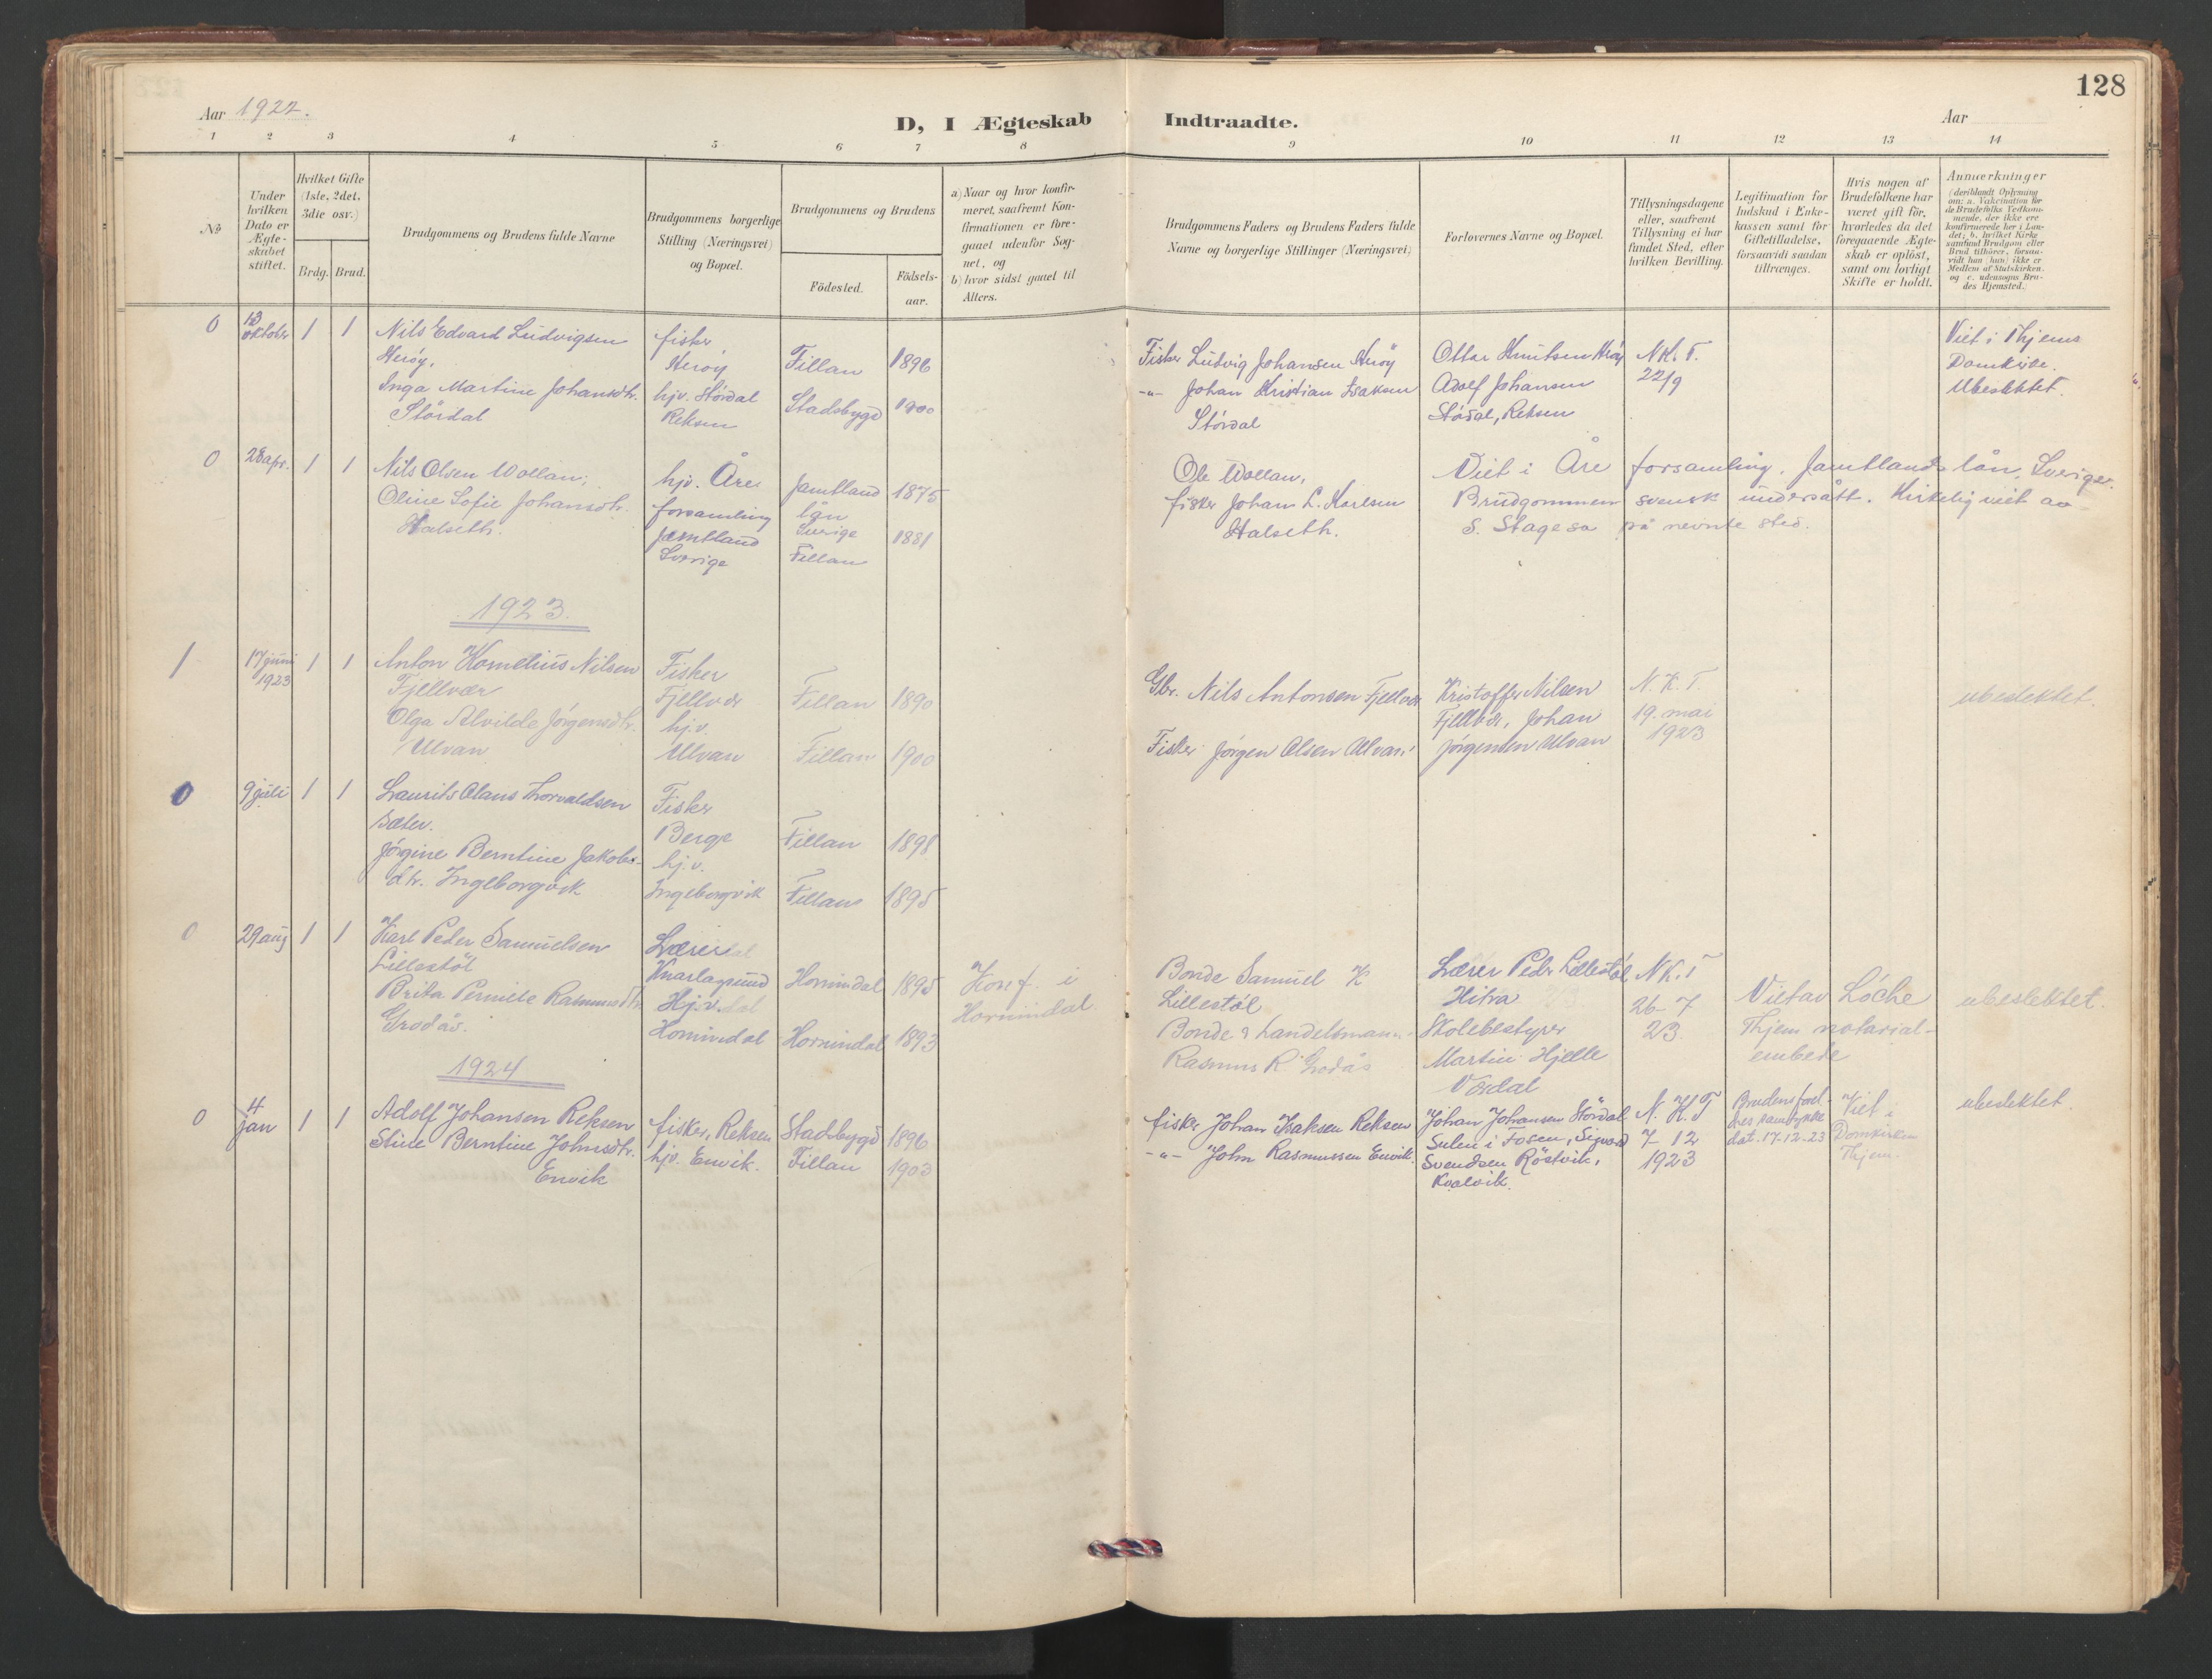 Aar 1922.
D, I Ægteskab Indtraadte.
Aar
128
1 2 3 4 5 6 7 8 9 10 11 12 13 14
No
Under hvilken Dato er Ægteskabet stiftet.
Hvilket Gifte (1ste, 2det, 3die osv.)
Brdg. Brud.
Brudgommens og Brudens fulde Navne
Brudgommens borgerlige Stilling (Næringsvei) og Bopæl.
Brudgommens og Brudens
Födested.
Födselsaar.
a) Naar og hvor konfirmeret, saafremt Konfirmationen er foregaaet udenfor Sognet, og
b) hvor sidst gaaet til Alters.
Brudgommens Faders og Brudens Faders fulde Navne og borgerlige Stillinger (Næringsvei)
Forlovernes Navne og Bopæl.
Tillysningsdagene eller, saafremt Tillysning ei har fundet Sted, efter hvilken Bevilling.
Legitimation for Indskud i Enkekassen samt for Giftetilladelse, forsaavidt saadan tiltrænges.
Hvis nogen af Brudefolkene har været gift för, hvorledes da det foregaaende Ægteskab er oplöst, samt om lovligt Skifte er holdt.
Anmærkninger
(deriblandt Oplysning om: a. Vakcination for de Brudefolks Vedkommende, der ikke ere konfirmerede her i Landet; b. hvilket Kirkesamfund Brudgom eller Brud tilhörer, forsaavidt han (hun) ikke er Medlem af Statskirken, og c. udensogns Brudes Hjemsted.
0 13 oktober 1 1
Nils Edvard Ludvigsen
Herøy,
Inga Martine Johansdtr.
Stördal
fisker
Herøy
hjv. Stördal
Reksen
Fillan 1896
Stadsbygd 1900
Fisker Ludvig Johansen Herøy
-"- Johan Kristian Isaksen
Stördal
Ottar Knutsen Herøy
Adolf Johansen
Stördal, Reksen
N.K.T.
22/9
Viet i Thjems
Domkirke.
Ubeslektet.
0 28 apr. 1 1
Nils Olsen Wollan,
Oline Sofie Johansdtr.
Halseth.
hjv. Åre
forsamling
Jæmtland
Sverige
Jamtland 1875
län
Sverige 1881
Fillan
Ole Wollan,
fisker Johan L. Karlsen
Halseth.
Viet i Åre forsamling, Jamtlands län, Sverige.
Brudgommen svensk undersått. Kirkelig viet av
S. Stagesa på nevnte sted.
1923.
1 17 juni 1923 1 1
Anton Kornelius Nilsen
Fjellvær
Olga Alvilde Jørgensdtr.
Ulvan
Fisker
Fjellvær
hj.v.
Ulvan
Fillan 1890
Fillan 1900
Gbr. Nils Antonsen Fjellvær
Fisker Jørgen Olsen Ulvan
Kristoffer Nilsen
Fjellvær, Johan
Jørgensen Ulvan
N. K. T.
19. mai
1923
ubeslektet.
0 9 juli 1 1
Laurits Olaus Thorvaldsen
Sæter.
Jörgine Berntine Jakobs-
dtr. Ingeborgvik
Fisker
Berge
hj.v.
Ingeborgvik
Fillan 1898
Fillan 1895
0 29 aug 1 1
Karl Peder Samuelsen
Lillestöl
Brita Pernille Rasmusdtr.
Grodås.
Lærer
Knarlagsund
Hj.v.
Hornindal
Hornindal 1895
Hornindal 1893
Konf. i
Hornindal
Bonde Samuel K
Lillestöl
Bonde & Handelsmann
Rasmus R Grodås
Lærer Peder Lillestöl
Hitra
Skolebestyrer
Martin Hjelle
N.K.T
26-7
23.
Viet av Löche
Thjem notarial-
embede
ubeslektet.
1924
0 4 jan 1 1
Adolf Johansen Reksen
Stine Berntine Johnsdtr.
Envik
fisker, Reksen
hjv. Envik.
Stadsbygd 1896
Fillan 1903
fisker Johan Isaksen Reksen
-"- John Rasmussen Envik.
Johan Johansen Stördal
Sulen i Fosen, Sigvard
Svendsen Röstvik,
Kvalvik.
N. K. T
7-12
1923
Brudens forel-
dres samtykke
dat. 17-12-23
Viet i
Domkirken
Thjem.
ubeslektet.